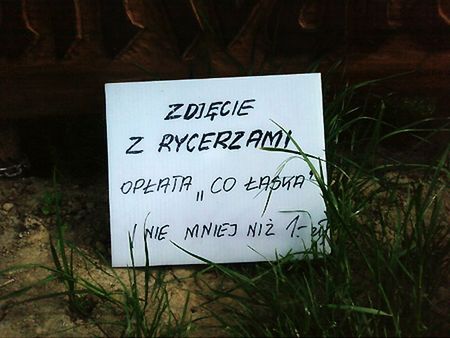 ZDJĘCIE
Z RYCERZAMI
OPŁATA „ CO ŁASKA
/ NIE MNIEJ NIŻ 1- zł